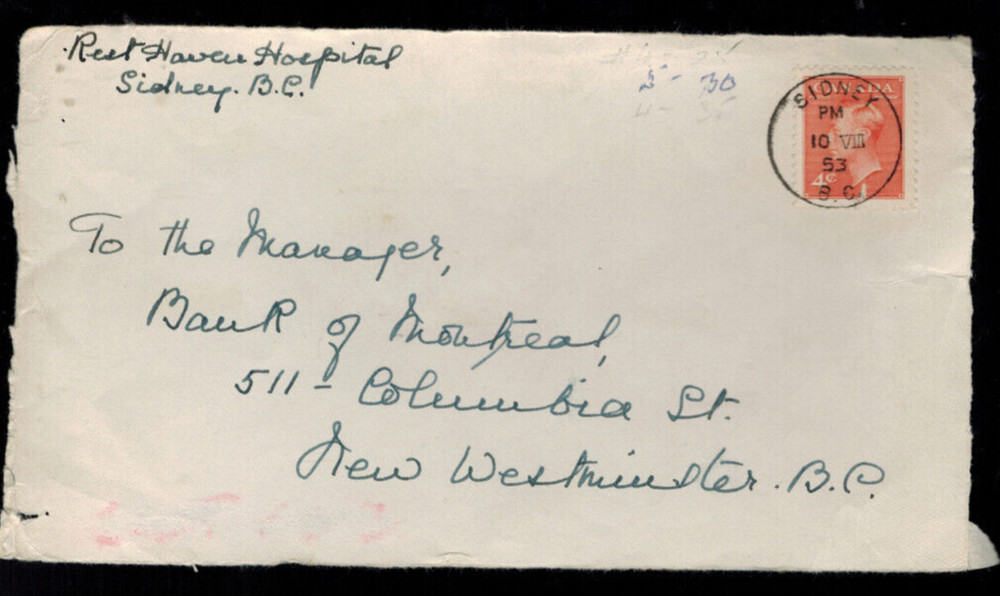 Rest Haven Hospital
Sidney. B.C.
5- 30
CANADA
SIDNEY
PM
10 VIII
53
4¢
B.C.
To the Manager,
Bank of Montreal,
511- Columbia St.
New Westminster. B.C.